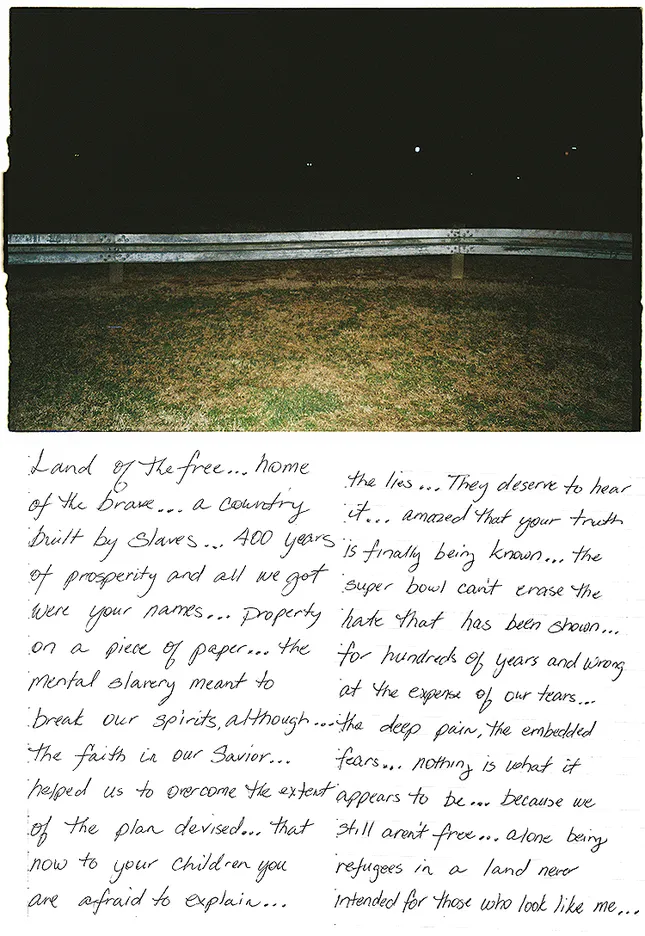 Land of the free... home
of the brave... a country
built by slaves... 400 years
of prosperity and all we got
were your names... property
on a piece of paper... the
mental slavery meant to
break our spirits, although...
the faith in our Savior...
helped us to overcome the extent
of the plan devised... that
now to your children you
are afraid to explain...
the lies... They deserve to hear
it... amazed that your truth
is finally being known... the
super bowl can't erase the
hate that has been shown...
for hundreds of years and wrong
at the expense of our tears...
the deep pain, the embedded
fears... nothing is what it
appears to be... because we
still aren't free... alone being
refugees in a land never
intended for those who look like me...